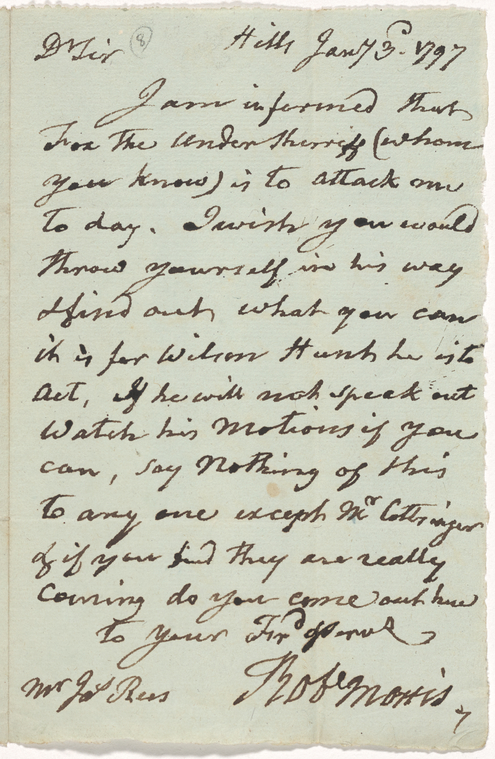 Dr Sir 8 Hills Jany 3d. 1797
I am informed that
Fox the under Sherriff (whom
you know) is to attack me
to day. I wish you would
throw yourself in his way
& find out, what you can
it is for Wilson Hunt he is to
Act, If he will not speak out
Watch his Motions if you
can, say Nothing of this
to any one except Mr Cottringer
& if you find they are really
Coming do you come out here
to your Frd & Servt
Mr Jas Rees Robt Morris